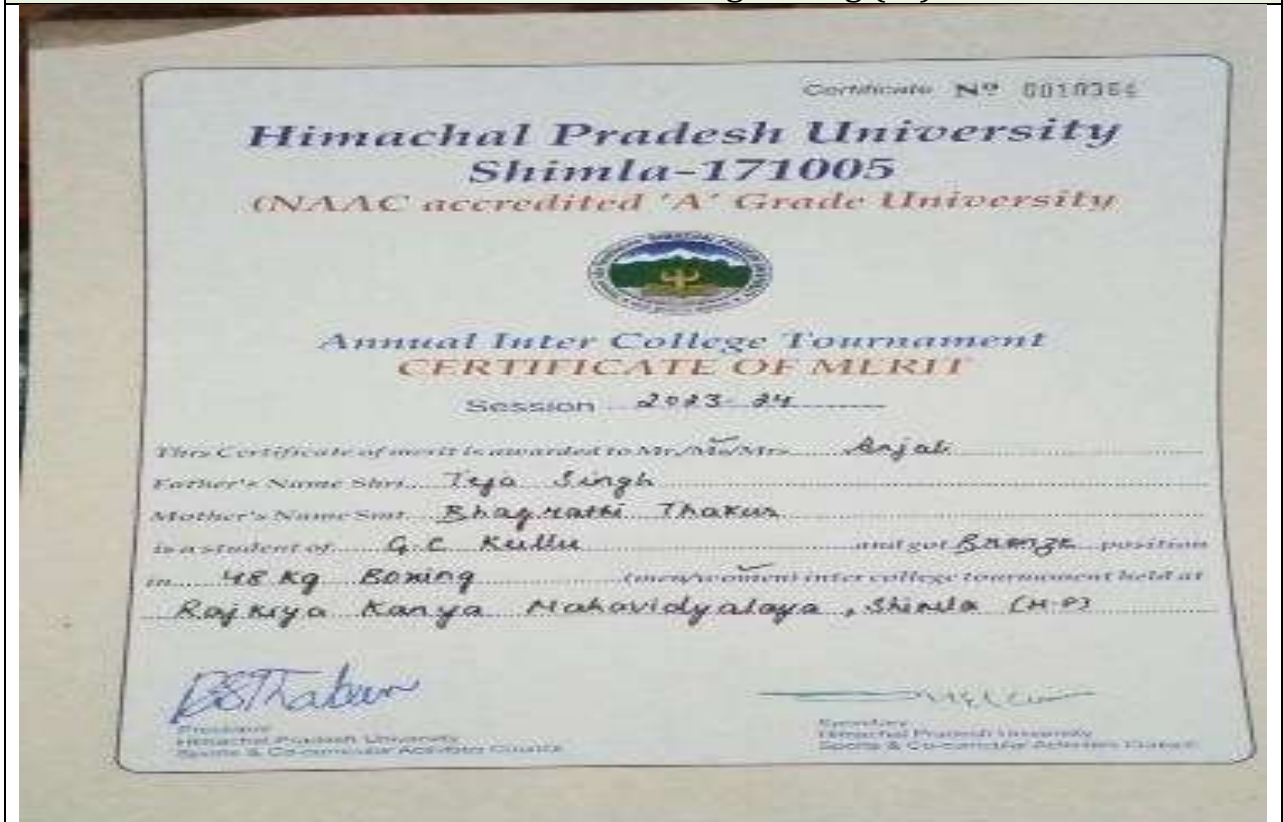 Certificate Nº 0010364
Himachal Pradesh University
Shimla-171005
(NAAC accredited 'A' Grade University
Annual Inter College Tournament
CERTIFICATE OF MERIT
Session 2023-24
This Certificate of merit is awarded to Mr./Ms/Mrs. Anjali
Father's Name Shri. Teja Singh
Mother's Name Smt. Bhagrathi Thakur
is a student of G.C Kullu and got Bronze position
in 48 Kg Boxing (men/women) inter college tournament held at
Rajkiya Kanya Mahavidyalaya, Shimla (H.P)
BSThakur
President
Himachal Pradesh University
Sports & Co-curricular Activities Council
Secretary
Himachal Pradesh University
Sports & Co-curricular Activities Council